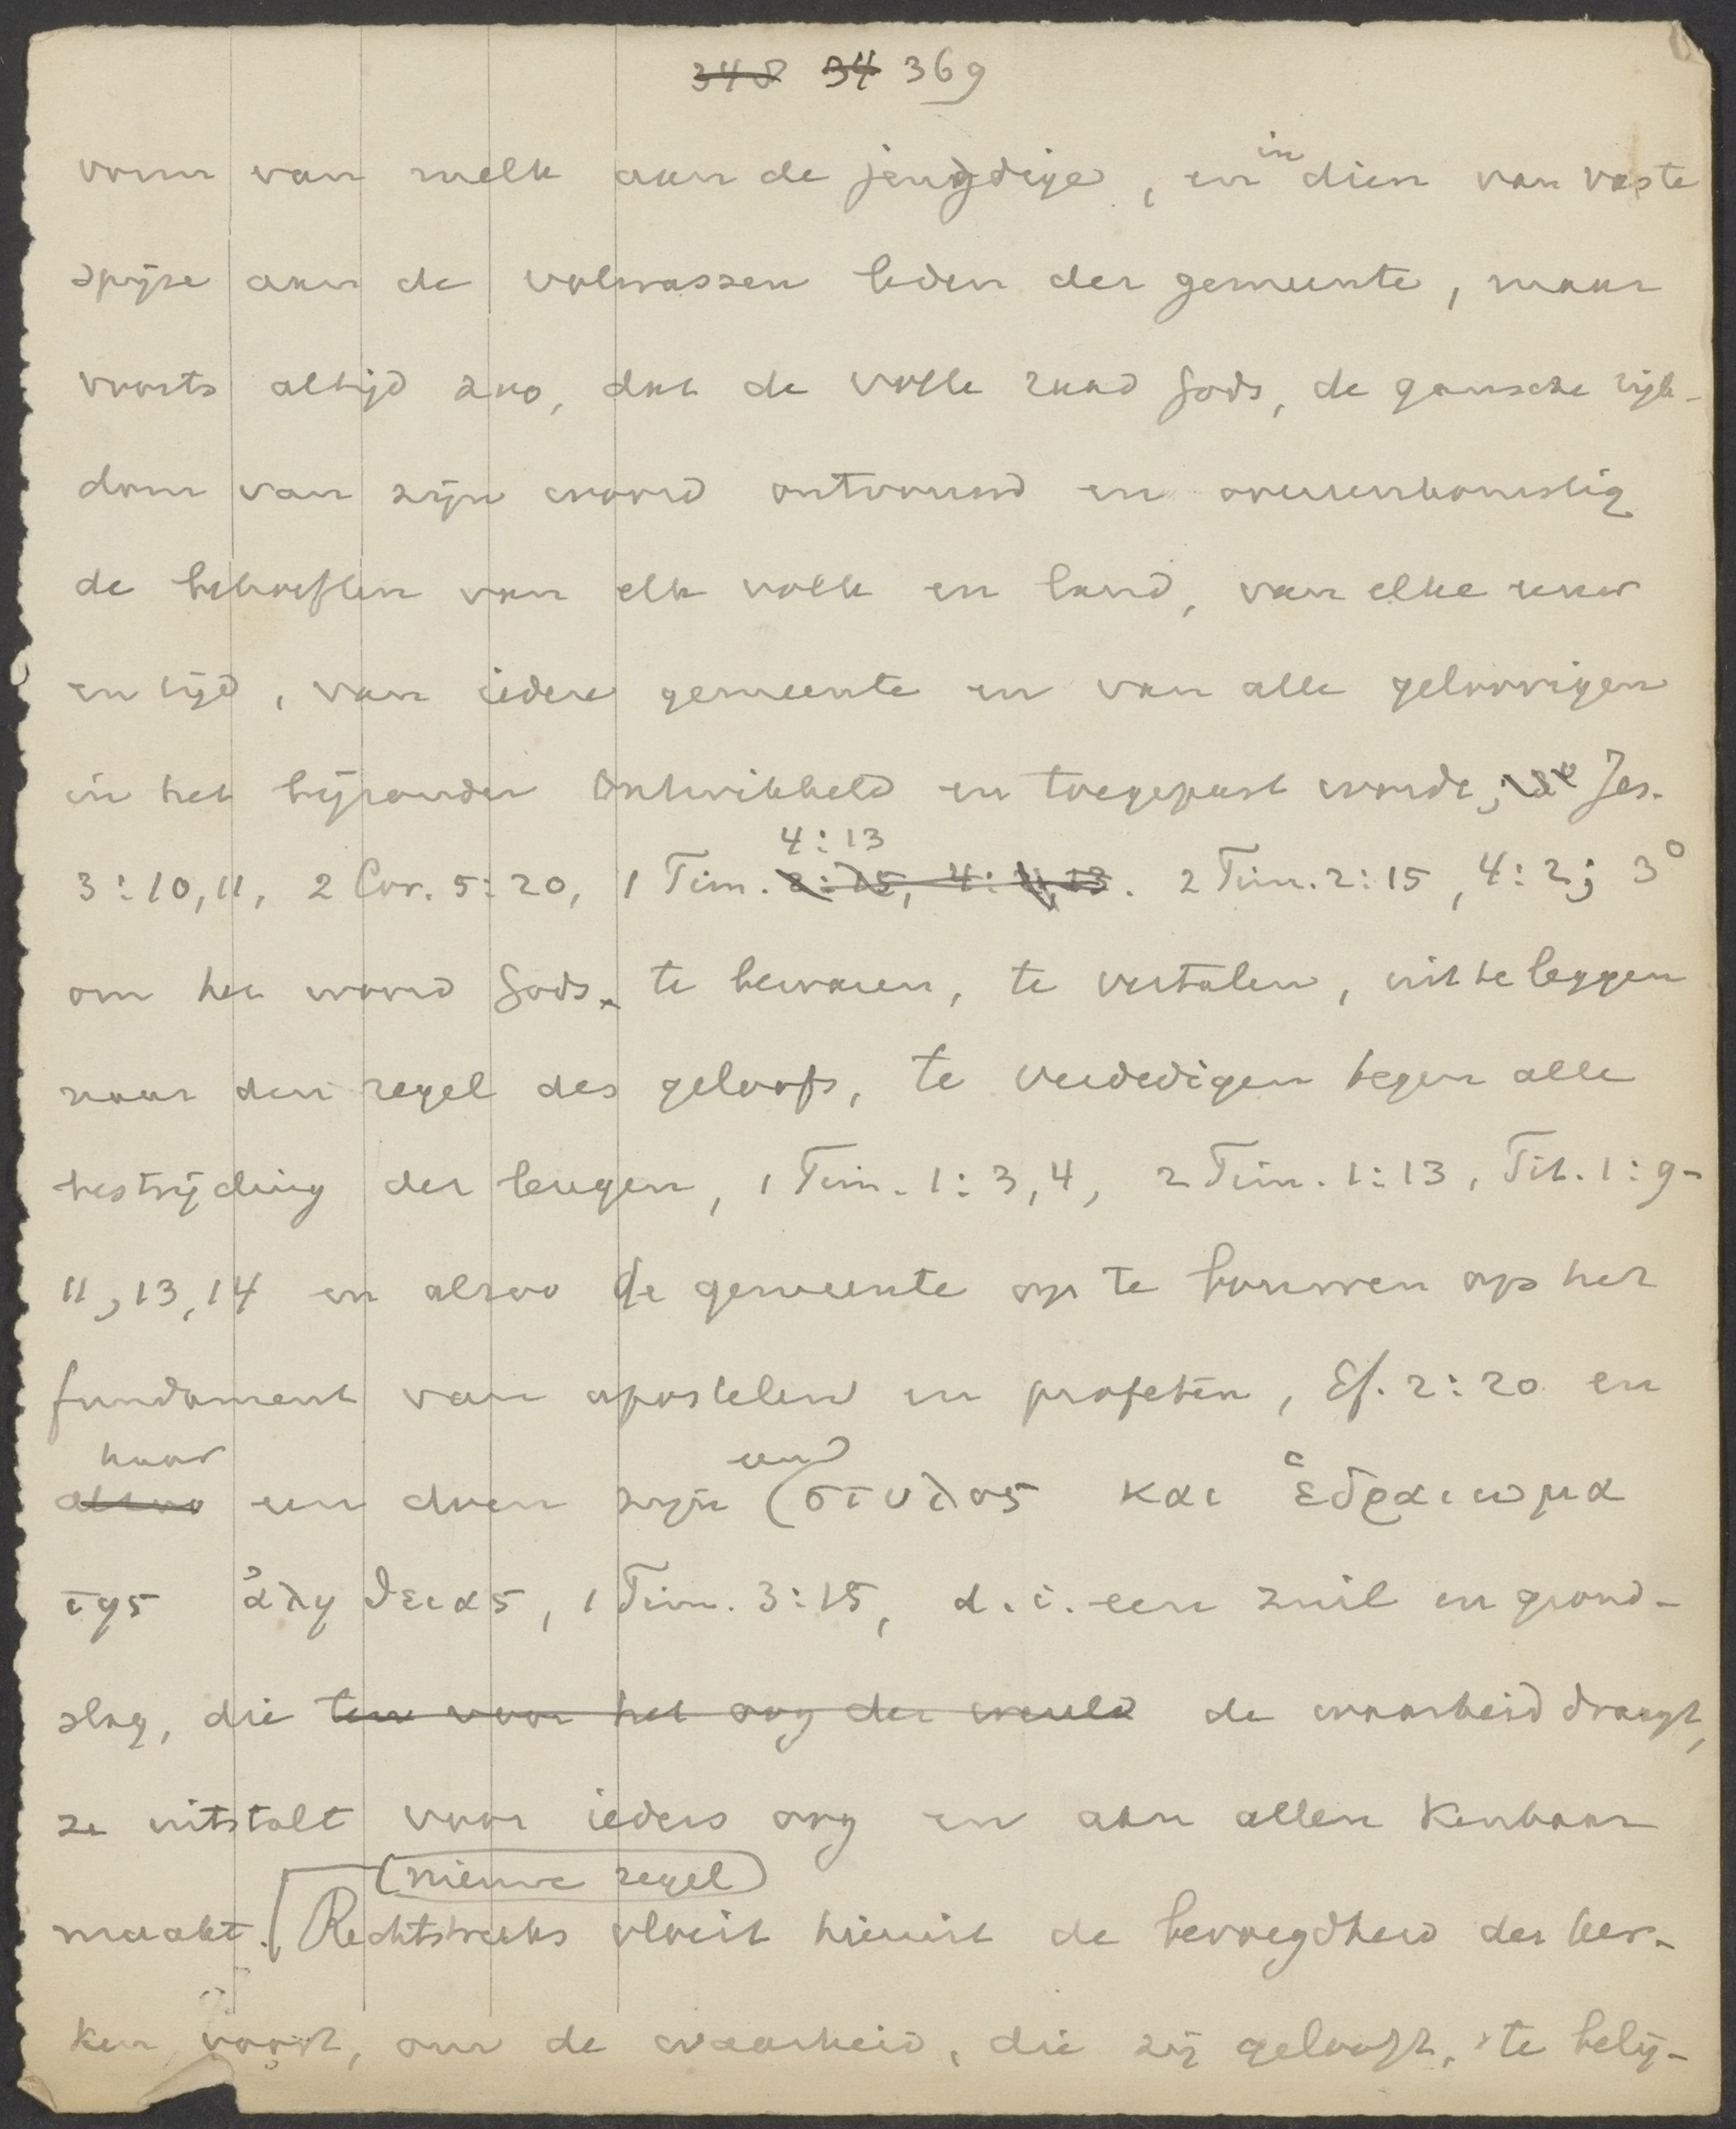 348 34 369
vorm van melk aan de jeugdige, en in dien van vaste
spijze aan de volwassen leden der gemeente, maar
voorts altijd zoo, dat de volle raad Gods, de gansche rijk-
dom van zijn woord ontvouwd en overeenkomstig
de behoeften van elk volk en land, van elke eeuw
en tijd, van iedere gemeente en van alle geloovigen
in het bijzonder ontwikkeld en toegepast worde, Jes.
4:13
3:10,11, 2 Cor. 5:20, 1 Tim. 3:15, 4:4,13. 2 Tim. 2:15, 4:2; 3°
om het woord Gods te bewaren, te vertalen, uit te leggen
naar den regel des geloofs, te verdedigen tegen alle
bestrijding der leugen, 1 Tim. 1:3,4, 2 Tim. 1:13, Tit. 1:9-
11, 13, 14 en alzoo de gemeente op te bouwen op het
fundament van apostelen en profeten, Ef. 2:20 en
haar een
alzoo een doen zijn στυλος και ἑδραιωμα
της ἀληθειας, 1 Tim. 3:15, d.i. een zuil en grond-
slag, die ten voor het oog der wereld de waarheid draagt,
ze uitstalt voor ieders oog en aan allen kenbaar
(nieuwe regel)
maakt. Rechtstreeks vloeit hieruit de bevoegdheid der ker-
ken voort, om de waarheid, die zij gelooft, te belij-